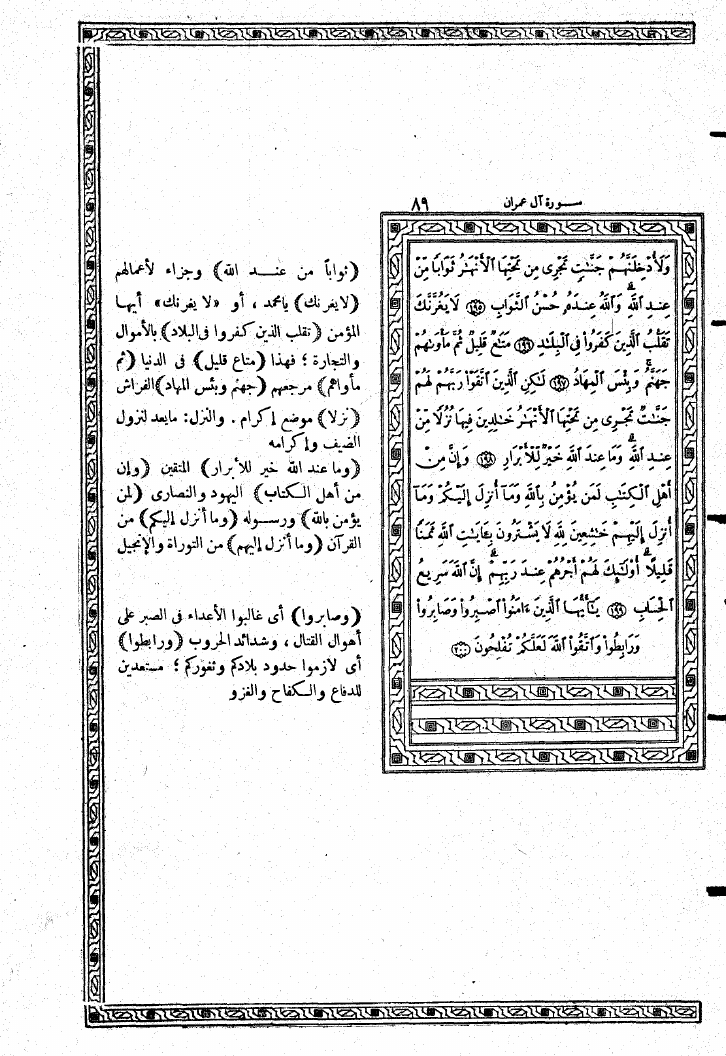 سورة آل عمران
٨٩
وَلَأُدْخِلَنَّهُمْ جَنَّٰتٍ تَجْرِى مِن تَحْتِهَا ٱلْأَنْهَٰرُ ثَوَابًا مِّنْ
عِندِ ٱللَّهِ ۗ وَٱللَّهُ عِندَهُۥ حُسْنُ ٱلثَّوَابِ ﴿١٩٥﴾ لَا يَغُرَّنَّكَ
تَقَلُّبُ ٱلَّذِينَ كَفَرُوا۟ فِى ٱلْبِلَٰدِ ﴿١٩٦﴾ مَتَٰعٌ قَلِيلٌ ثُمَّ مَأْوَىٰهُمْ
جَهَنَّمُ ۚ وَبِئْسَ ٱلْمِهَادُ ﴿١٩٧﴾ لَٰكِنِ ٱلَّذِينَ ٱتَّقَوْا۟ رَبَّهُمْ لَهُمْ
جَنَّٰتٌ تَجْرِى مِن تَحْتِهَا ٱلْأَنْهَٰرُ خَٰلِدِينَ فِيهَا نُزُلًا مِّنْ
عِندِ ٱللَّهِ ۗ وَمَا عِندَ ٱللَّهِ خَيْرٌ لِّلْأَبْرَارِ ﴿١٩٨﴾ وَإِنَّ مِنْ
أَهْلِ ٱلْكِتَٰبِ لَمَن يُؤْمِنُ بِٱللَّهِ وَمَآ أُنزِلَ إِلَيْكُمْ وَمَآ
أُنزِلَ إِلَيْهِمْ خَٰشِعِينَ لِلَّهِ لَا يَشْتَرُونَ بِـَٔايَٰتِ ٱللَّهِ ثَمَنًا
قَلِيلًا ۗ أُو۟لَٰٓئِكَ لَهُمْ أَجْرُهُمْ عِندَ رَبِّهِمْ ۗ إِنَّ ٱللَّهَ سَرِيعُ
ٱلْحِسَابِ ﴿١٩٩﴾ يَٰٓأَيُّهَا ٱلَّذِينَ ءَامَنُوا۟ ٱصْبِرُوا۟ وَصَابِرُوا۟
وَرَابِطُوا۟ وَٱتَّقُوا۟ ٱللَّهَ لَعَلَّكُمْ تُفْلِحُونَ ﴿٢٠٠﴾
(ثواباً من عند الله) وجزاء لأعمالهم
(لا يغرنك) يا محمد ، أو «لا يغرنك» أيها
المؤمن (تقلب الذين كفروا فى البلاد) بالأموال
والتجارة ؛ فهذا (متاع قليل) فى الدنيا (ثم
مأواهم) مرجعهم (جهنم وبئس المهاد) الفراش
(نزلا) موضع إكرام . والنزل: ما يعد لنزول
الضيف وإكرامه
(وما عند الله خير للأبرار) المتقين (وإن
من أهل الكتاب) اليهود والنصارى (لمن
يؤمن بالله) ورسوله (وما أنزل إليكم) من
القرآن (وما أنزل إليهم) من التوراة والإنجيل
(وصابروا) أى غالبوا الأعداء فى الصبر على
أهوال القتال ، وشدائد الحروب (ورابطوا)
أى لازموا حدود بلادكم وثغوركم ؛ مستعدين
للدفاع والكفاح والغزو